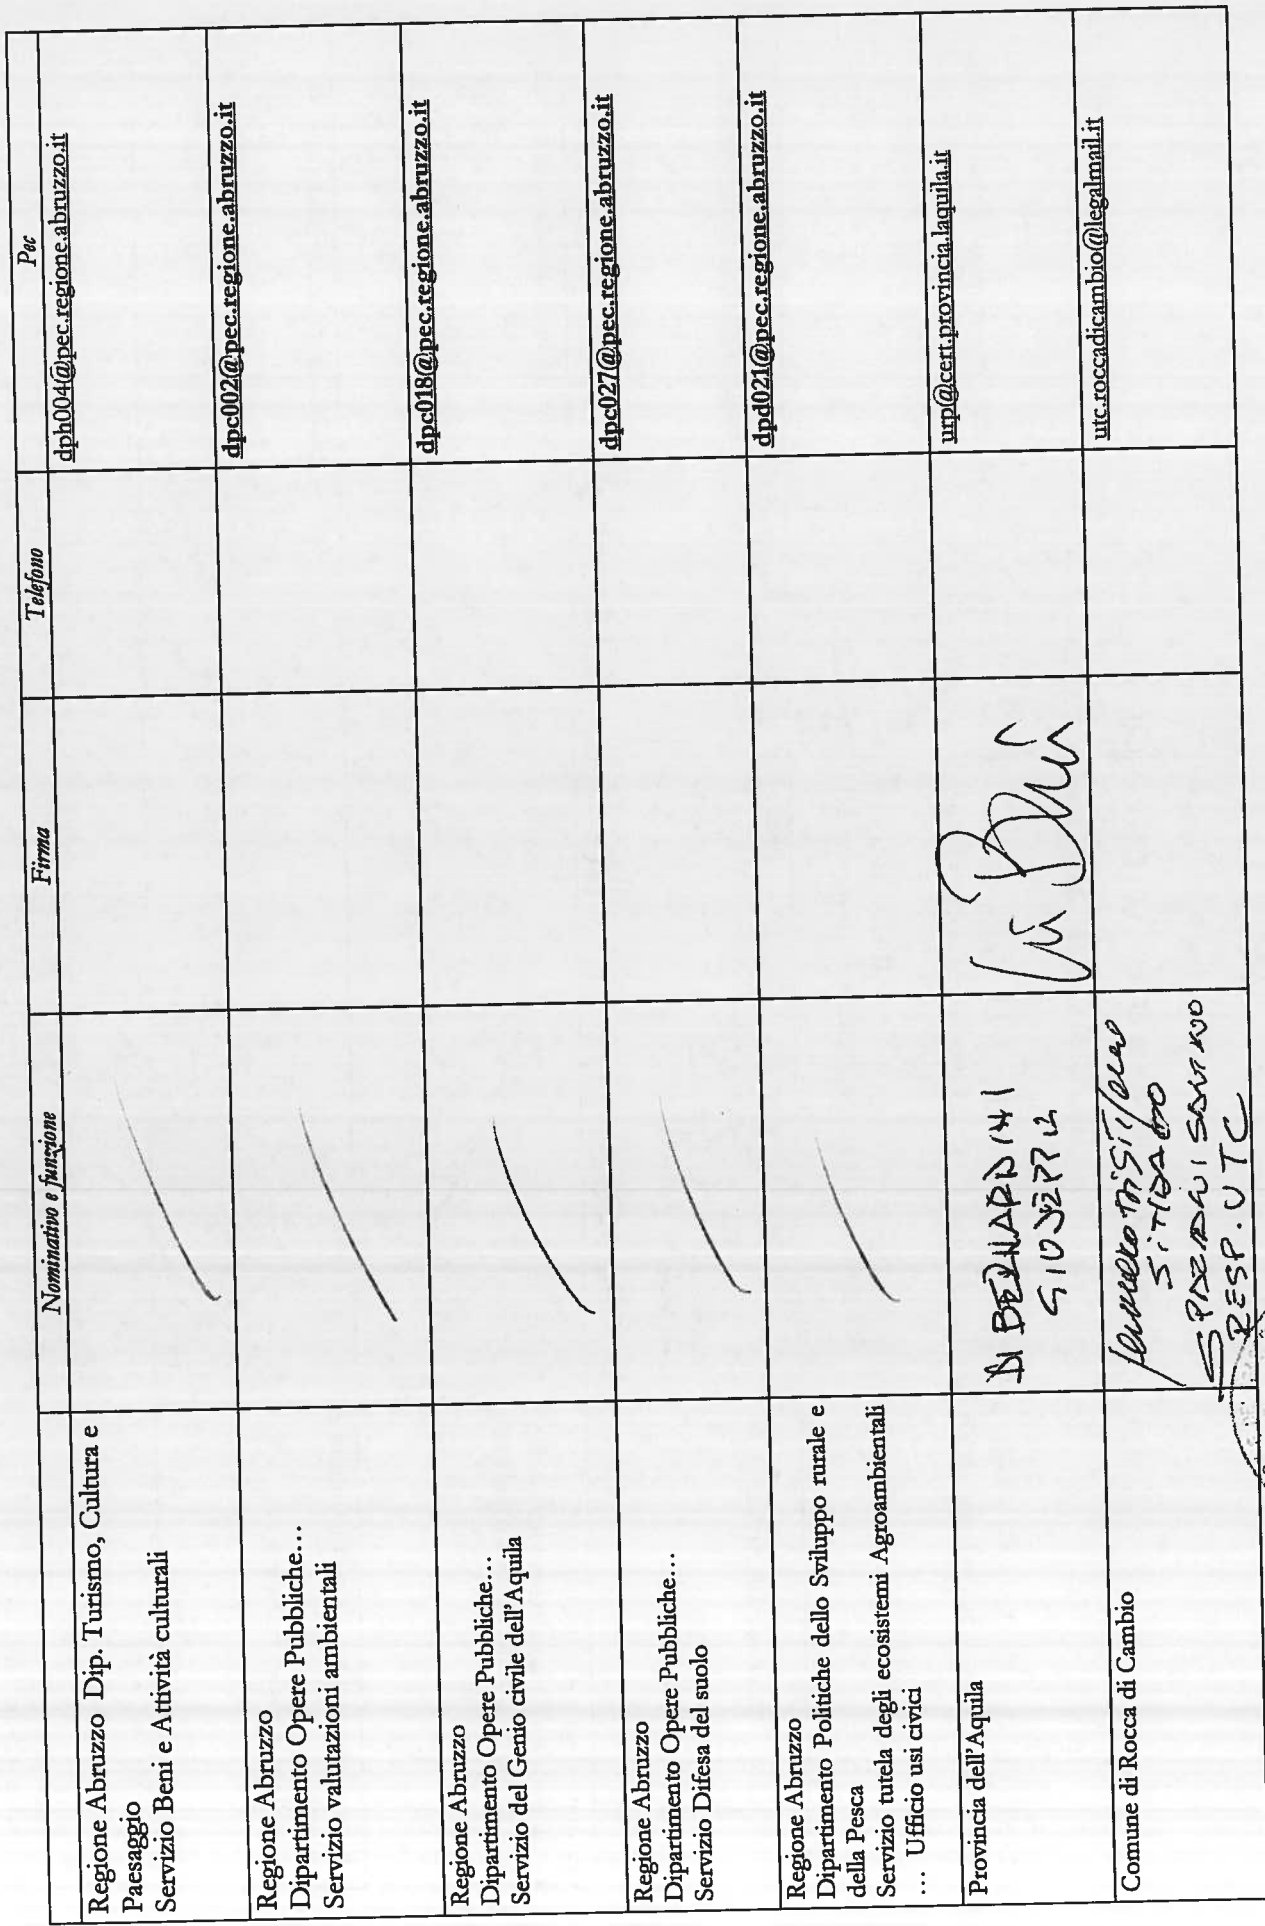 Nominativo e funzione Firma Telefono Pec
Regione Abruzzo Dip. Turismo, Cultura e
Paesaggio
Servizio Beni e Attività culturali
dph004@pec.regione.abruzzo.it
Regione Abruzzo
Dipartimento Opere Pubbliche…
Servizio valutazioni ambientali
dpc002@pec.regione.abruzzo.it
Regione Abruzzo
Dipartimento Opere Pubbliche…
Servizio del Genio civile dell'Aquila
dpc018@pec.regione.abruzzo.it
Regione Abruzzo
Dipartimento Opere Pubbliche…
Servizio Difesa del suolo
dpc027@pec.regione.abruzzo.it
Regione Abruzzo
Dipartimento Politiche dello Sviluppo rurale e
della Pesca
Servizio tutela degli ecosistemi Agroambientali
… Ufficio usi civici
dpd021@pec.regione.abruzzo.it
Provincia dell'Aquila
DI BERNARDINI
GIUSEPPE
urp@cert.provincia.laquila.it
Comune di Rocca di Cambio
RESP. UTC
utc.roccadicambio@legalmail.it